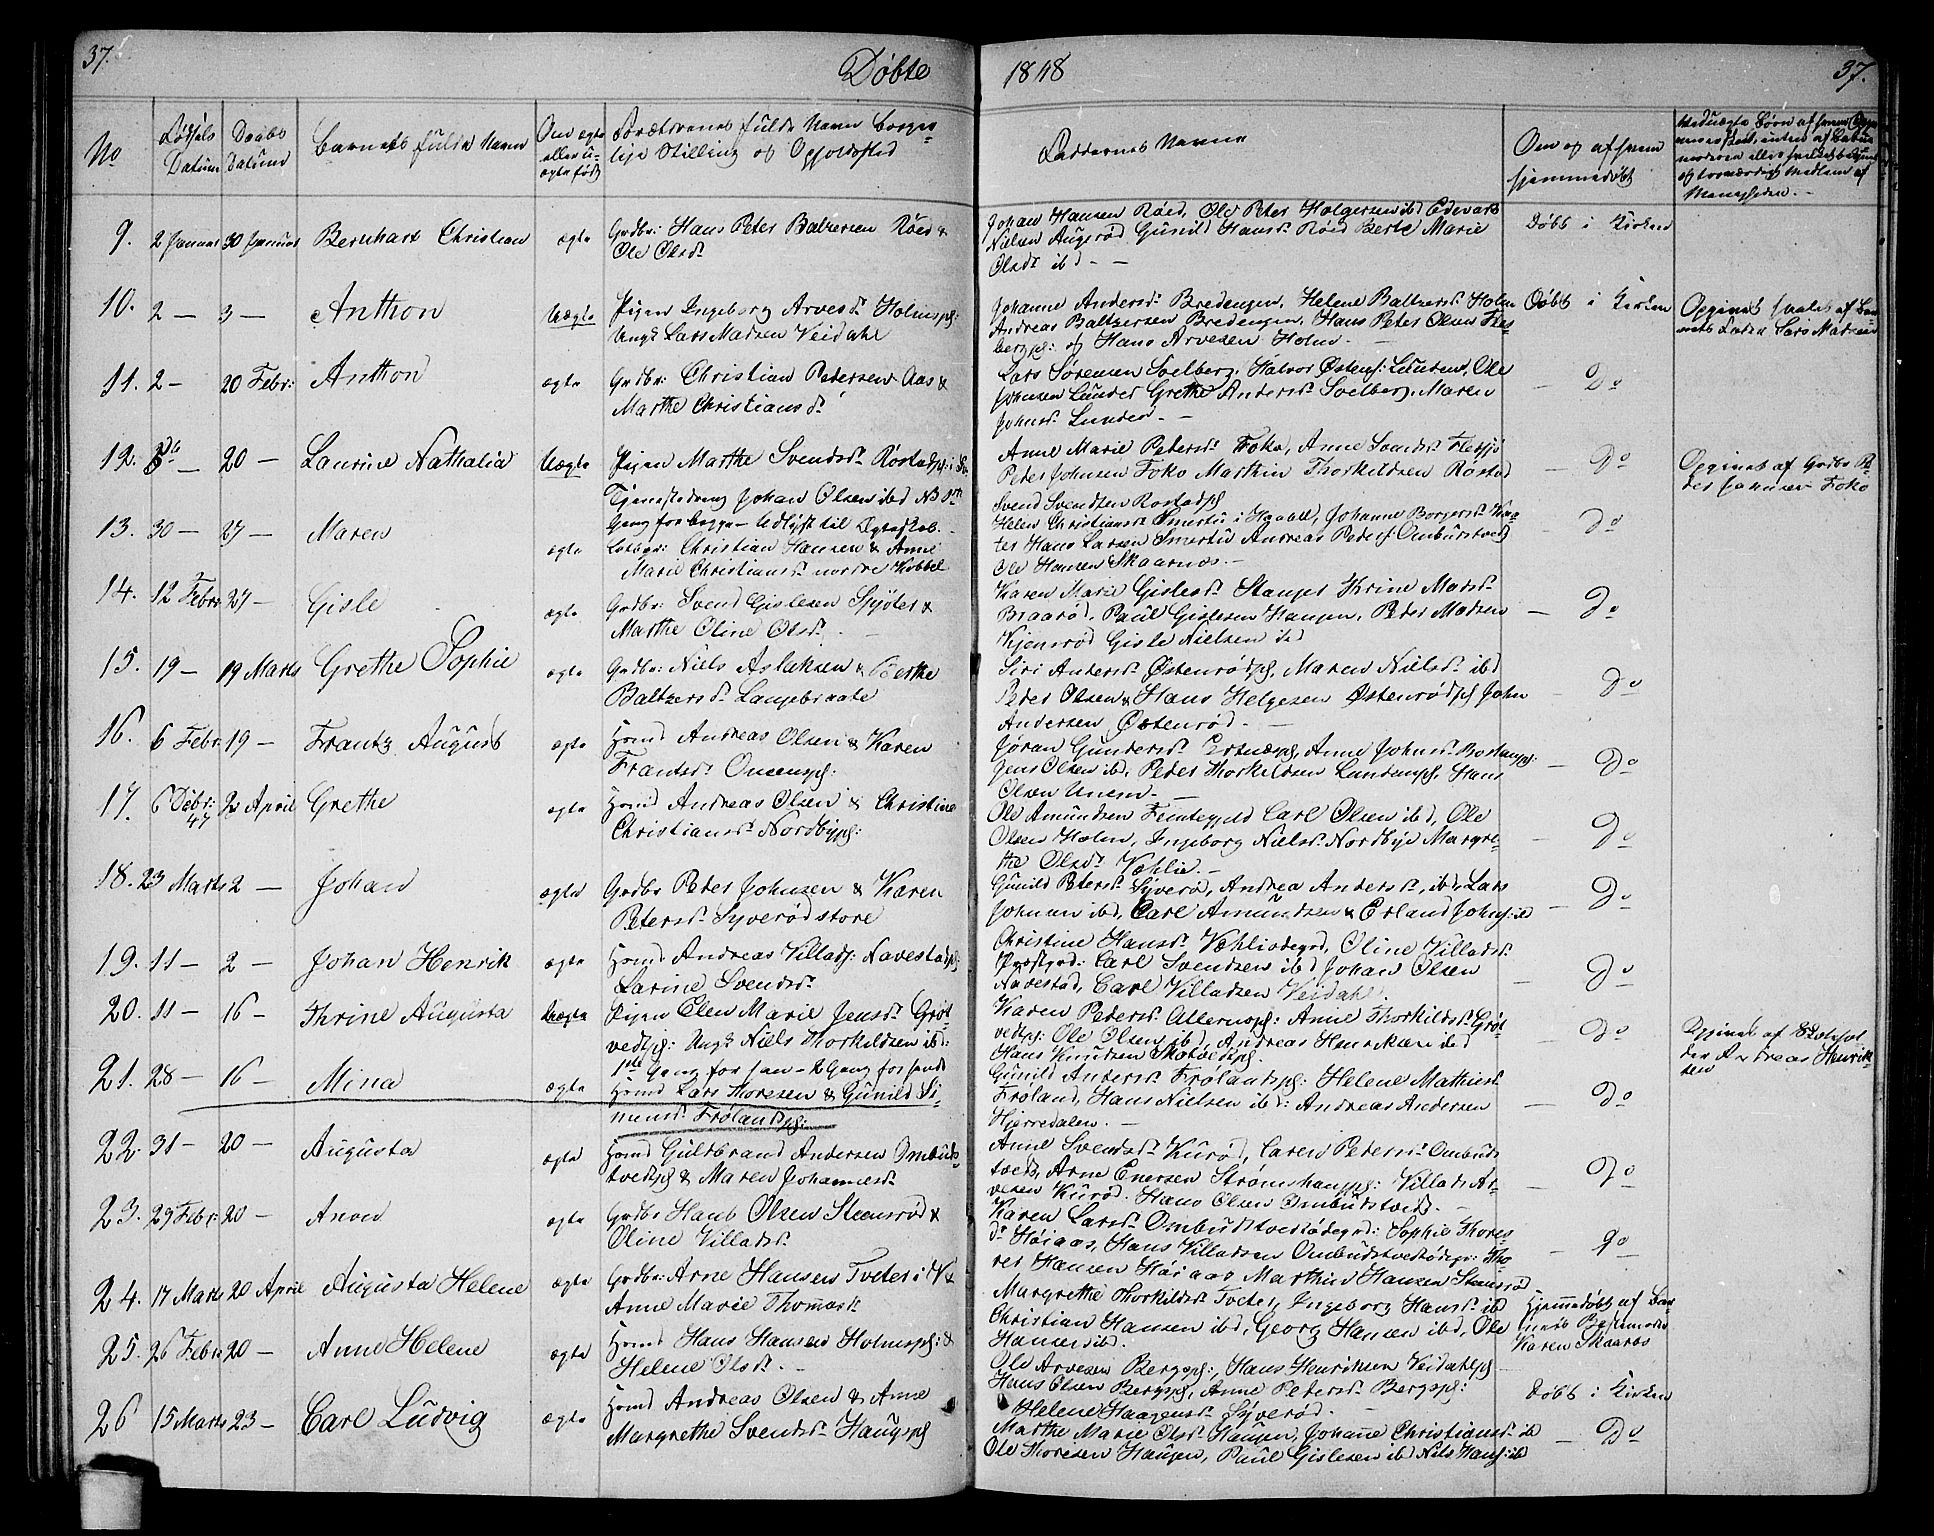 37.
Døbte
1848
37.
No
Fødsels Datum
Daabs Datum
Barnets fulde Navn
Om ægte eller u-ægte født
Forældrenes fulde Navn Borger-
lige Stilling og Opholdsted
Faddernes Navne
Om og af hvem
hjemmedøbt
9. 2 Januar 30 Januar Bernhart Christian ægte Grdbr: Hans Peter Baltzersen Röed &
Ole Olsdr
Johan Hansen Röed, Ole Peter Holgersen ibd Edvart
Nielsen Augerød Gunild Hansdr Röed Berte Marie
Olsdr ibd —
Døbt i Kirken
10. 2 — 3 — Anthon Uægte Pigen Ingeborg Arvesdr Holmspl:
Ungk Lars Madsen Veidahl
Johanne Andersdr Bredengen, Helene Baltzersdr Holm
Andreas Baltzersen Bredengen, Hans Peter Olsen
bergpl: og Hans Arvesen Holm. —
Døbt i Kirken
Opgivet af
Fader Lars Madsen
11. 2 — 20 Febr: Anthon ægte Grdbr: Christian Pedersen Aas &
Marthe Christiansdr
Lars Sörensen Soelberg, Halvor Østens: Lunden, Ole
Johnsen Lunder Grethe Andersdr Soelberg, Maren
Johnsdr Lunden —
— Do
12. — 20 — Laurine Nathalia Uægte Pigen Marthe Svendsdr Röstadpl: i
Tjenestedreng Johan Olsen ibd NB
Gang for begge — Udlyst til Ægteskab. —
Anne Marie Petersdr Foko, Anne Svendsdr
Peter Johnsen Foko Marthin Thorkildsen Röstad
Svend Svendsen Röstadpl
— Do
Opgivet af Grdbr Pe-
der Johnsen Foko
13. 30 — 27 — Maren ægte Christian Hansen & Anne
Marie Christiansdr nordre Kobbel
Helen Christiansdr Smertu i Haabøl, Johanne Borgersdr
Hans Larsen Smertu Andreas Peders: Ombudstvedt
Ole Hansen Skaarnes. —
— do
14. 12 Febr: 27 — Gisle ægte Grdbr: Svend Gislesen Spjöter &
Marthe Oline Olsdr. —
Karen Marie Gislesdr Stanger Thrine Madsdr
Braarød, Paul Gislesen Haugen, Peder Madsen
Kjensrød Gisle Nielsen ibd
— Do
15. 19 — 19 Marts Grethe Sophie ægte Grdbr: Niels Aslaksen & Berthe
Baltzersdr Langebraate
Siri Andersdr Østenrødpl, Maren Nielsdr ibd
Peder Olsen & Hans Helgesen Østenrødpl John
Andersen Østenrød. —
— Do
16. 6 Febr 19 — Frantz August ægte Hsmd Andreas Olsen & Karen
Frantsdr Onsenpl:
Jöran Gundersdr, Anne Johnsdr
Jens Olsen ibd, Peder Thorkildsen Lundempl, Hans
Olsen Unesm. —
— Do
17. 6 Debr: 47 2 April Grethe ægte Hsmd Andreas Olsen & Christine
Christiansdr Nordbypl:
Ole Amundsen Femtegjeld Carl Olsen ibd, Ole
Olsen Holm, Ingeborg Nielsdr Nordbye Margre-
the Olsdr Væhlie. —
— Do
18. 23 Marts 2 — Johan ægte Grdbr Peter Johnsen & Karen
Petersdr Syverød store
Gunild Petersdr Syverød, Andrea Andersdr ibd, Lars
Johnsen ibd, Carl Amundsen & Erland Johns: ibd
— Do
19. 11 — 2 — Johan Henrik ægte Hsmd Andreas Villads: Navestadpl:
Larine Svendsdr
Christine Hansdr Væhlieödegrd, Oline Villadsdr
Præstgrd: Carl Svendsen ibd Johan Olsen
Navestad, Carl Villadsen Veidahl.
— Do
20. 11 — 16 — Thrine Augusta Uægte Pigen Elen Marie Jensdr Gröt-
vedtpl: Ungk Niels Thorkildsen ibd:
1ste Gang for ham — 2 Gang for hende
Karen Pedersdr Allerenspl: Anne Thorkildsdr Gröt-
vedtpl: Ole Olsen ibd, Andreas Henriksen ibd
Hans Knudsen Skotvedtpl.
— Do
Opgivet af Skolehol
der Andreas Henrik-
sen
21. 28 — 16 — Mina ægte Hsmd Lars Thoresen & Gunild Si-
mensdr Frølandspl:
Gunild Andersdr Frølandspl: Helene Mathiesdr
Frøland, Hans Nielsen ibd: Andreas Andersen
Hjerredalen. —
— do
22. 31 — 20 — Augusta ægte Hsmd Guldbrand Andersen Ombuds-
tvedtpl & Maren Johannesdr
Anne Svendsdr Kurød, Caren Petersdr Ombuds
tvedt, Arne Enersen Strömshaugpl: Villads Ar-
vesen Kurød. Hans Olsen Ombudstvedt. —
— Do
23. 29 Febr: 20 — Anen ægte Grdbr Hans Olsen Steensrød &
Oline Villadsdr
Karen Larsdr Ombudstvedtödegrd: Sophie Thores-
dr Höiaas, Hans Villadsen Ombudstvedtödegr: Tho-
res Hansen Höiaas Marthin Hansen Steensrød
— Do
24. 17 Marts 20 April Augusta Helene ægte Grdbr: Arne Hansen Tveter i V &
Anne Marie Thomasdr
Margrethe Thorkildsdr Tveter, Ingeborg Hansdr ibd
Christian Hansen ibd, Georg Hansen ibd, Ole
Hansen ibd.
Hjemmedøbt af Bar
nets Bestmoder
Karen Skaaros
25. 26 Febr 20 — Anne Helene ægte Hsmd Hans Hansen Holmspl: &
Helene Olsdr. —
Ole Arvesen Bergspl:, Hans Henriksen Veidahlpl
Hans Olsen Bergspl, Anne Petersdr Bergspl:
Helene Haagensdr Syverød. —
Døbt i Kirken
26 15 Marts 23 — Carl Ludvig ægte Hsmd Andreas Olsen & Anne
Margrethe Svendsdr Haugspl
Marthe Marie Olsdr Haugen, Johanne Christiansdr ib
Ole Thoresen Haugen, Paul Gislesen ibd Nils Hans: ib
— Do